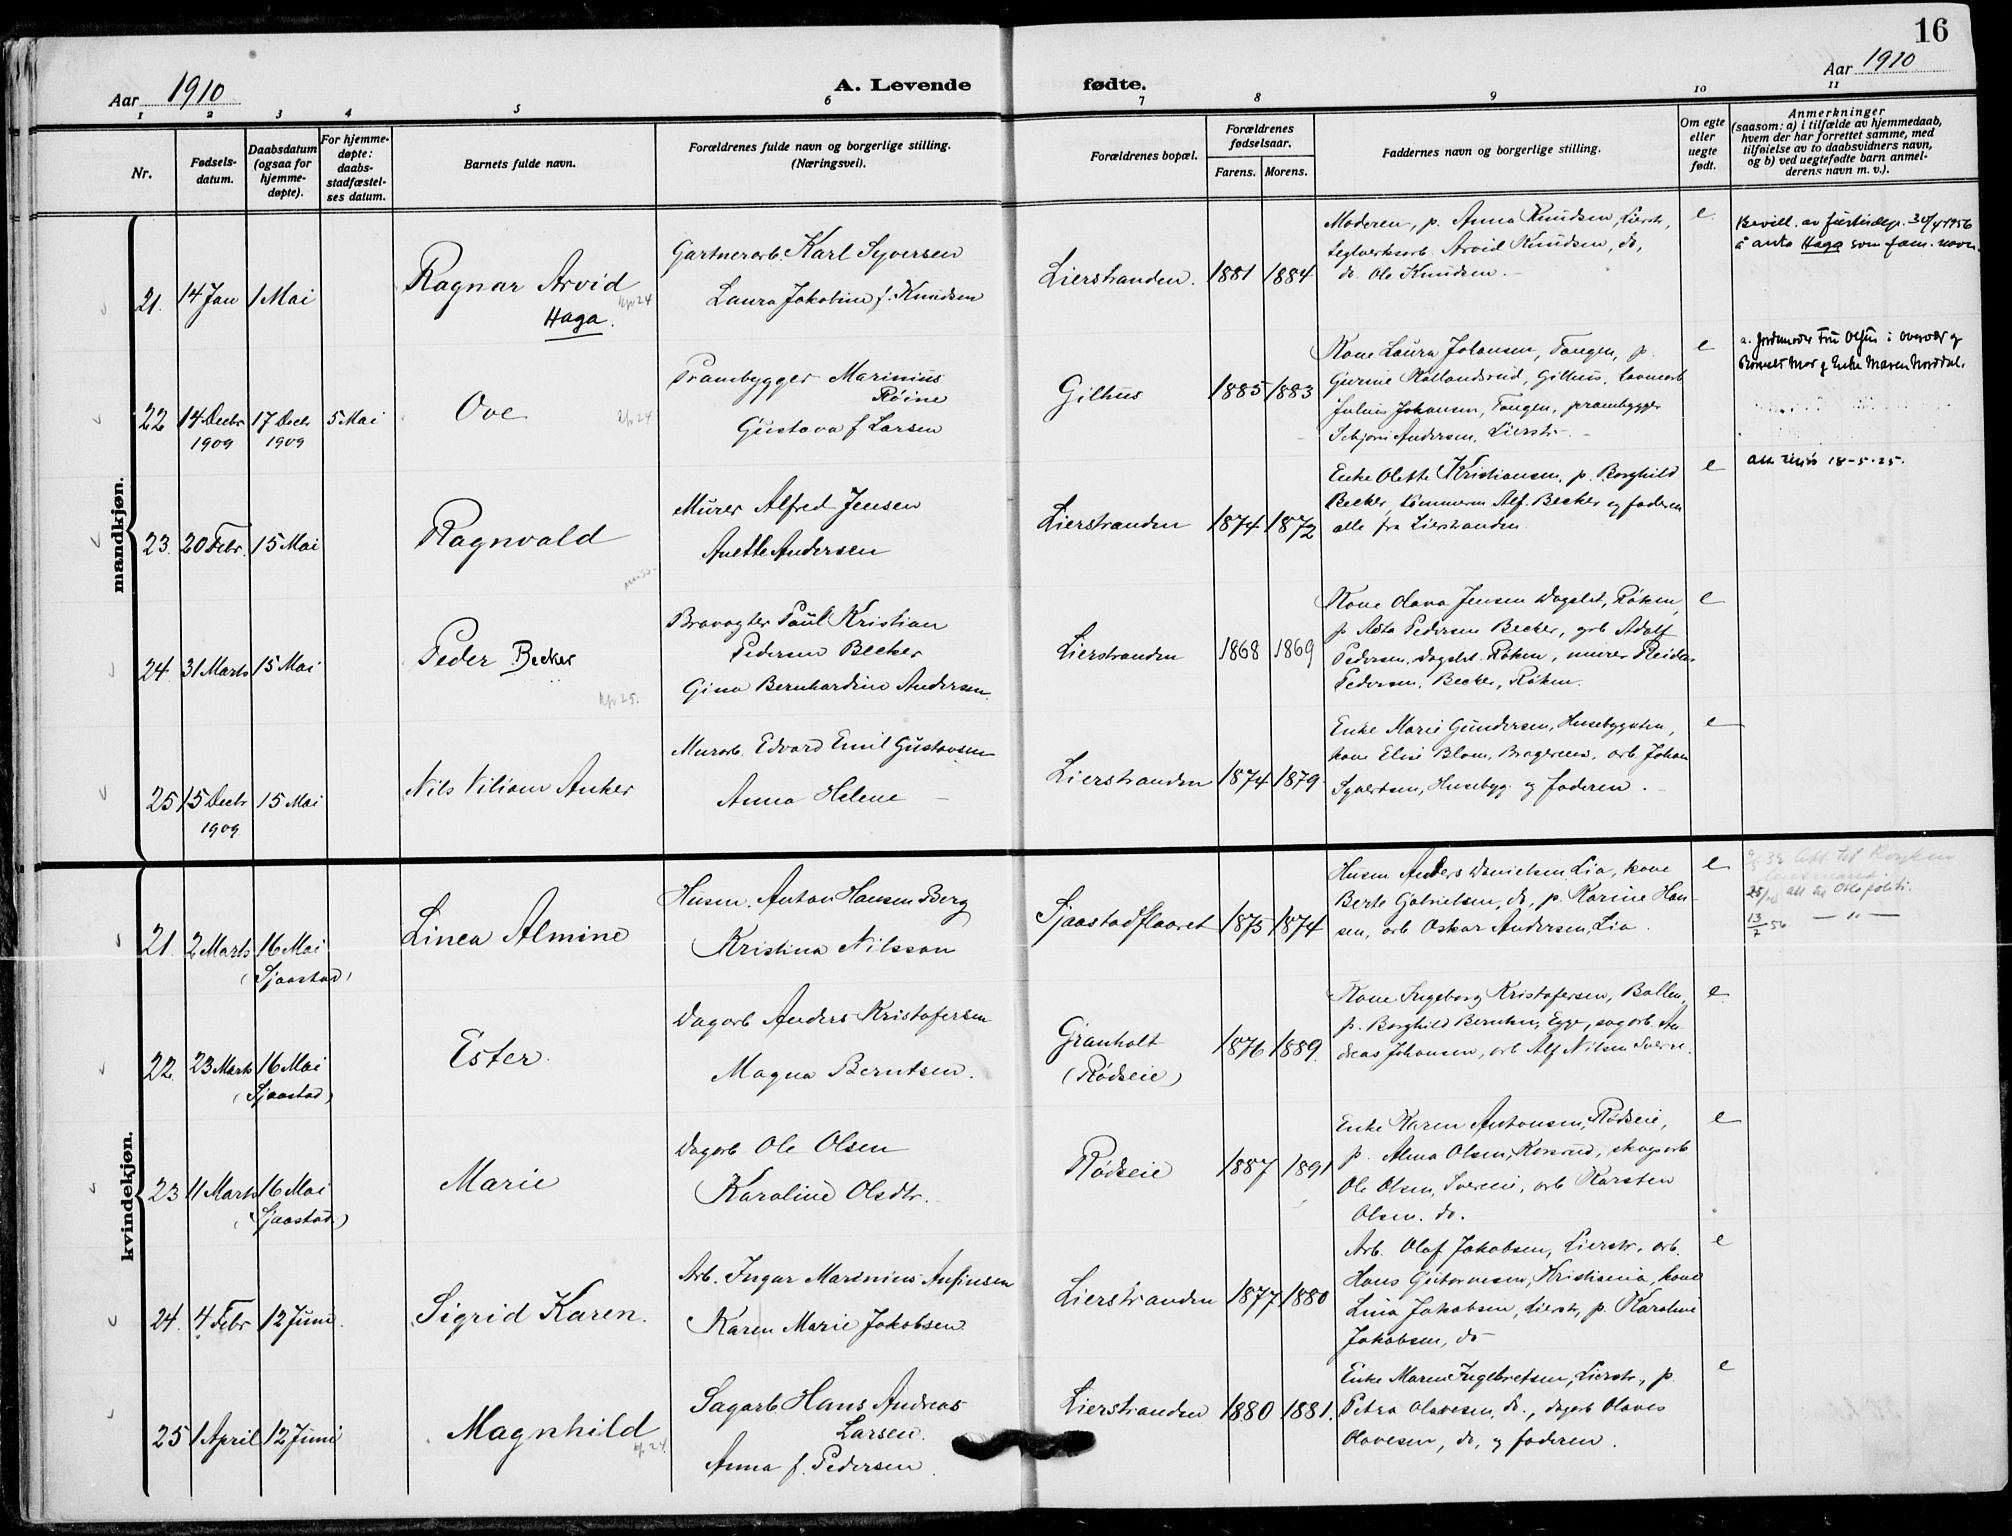 16
Aar 1910
A. Levende fødte.
Aar 1910
1 2 3 4 5 6 7 8 9 10 11
Nr.
Fødsels-
datum.
Daabsdatum
(ogsaa for
hjemme-
døpte).
For hjemme-
døpte:
daabs-
stadfæstel-
ses datum.
Barnets fulde navn.
Forældrenes fulde navn og borgerlige stilling.
(Næringsvei).
Forældrenes bopæl.
Forældrenes
fødselsaar.
Farens. Morens.
Faddernes navn og borgerlige stilling.
Om egte
eller
uegte
født.
Anmerkninger
(saasom: a) i tilfælde av hjemmedaab,
hvem der har forrettet samme, med
tilføielse av to daabsvidners navn,
og b) ved uegtefødte barn anmel-
derens navn m. v.).
mandkjøn.
21. 14 Jan 1 Mai
Ragnar Arvid
Haga.
Gartnerarb. Karl Syversen
Laura Jakobine f. Knudsen
Lierstranden. 1881 1884
Moderen, p. Anna Knudsen, Lierstr.,
teglverksarb. Arvid Knudsen, do,
do. Ole Knudsen.
e
Bevill. av justisdep. 30/4 1956
å anta Haga som fam. navn.
22 14 Decbr 17 Decbr 5 Mai
1909 1909
Ove
Prambygger Marinius
Røine
Gustava f Larsen
Gilhus 1885 1883
Kone Laura Johansen, Tangen, p.
Gurine Kollandsrud, Gilhus,
Julius Johansen, Tangen, prambygger
Andersen, Lierstr.
e
a. Jordmoder Fru i overvær af
Barnets Mor g Enke Maren Norddal.
23. 20 Febr. 15 Mai
Ragnvald
Murer Alfred Jensen
Anette Andersen
Lierstranden 1874 1872
Enke Olette Kristiansen, p. Borghild
Becker, tømmerm Alf. Becker og faderen
alle fra Lierstranden.
e
18-5-25.
24. 31 Marts 15 Mai
Peder Becker
Brovogter Paul Kristian
Pedersen Becker
Gina Bernhardine Andersen.
Lierstranden 1868 1869
Kone Olava Jensen Dagslet, Røken,
p Asta Pedersen Becker, grb Adolf
Pedersen, Dagslet Røken, murer Reidar
Pedersen, Becker, Røken.
e
25 15 Decbr 15 Mai
1909
Nils Viliam Anker
Murarb. Edvard Emil Gustavsen
Anna Helene —
Lierstranden 1874 1879
Enke Marie Gundersen, Husebygaten,
kone Elise Blom, Bragernes, arb. Johan
Syvertsen, Husebyg. og faderen.
e
kvindekjøn.
21. 2 Marts 16 Mai
(Sjaastad)
Linea Almine
Husm. Anton Hansen Berg
Kristina Nilsson
Sjaastadflaaret 1875 1874
Husm Anders Danielsen Lia, kone
Berte Gabrielsen, do, p. Karine Han-
sen, arb Oskar Andersen, Lia.
e
att. til Oslo politi.
13/7 56 — " —
22. 23 Marts 16 Mai
(Sjaastad)
Ester.
Dagarb Anders Kristofersen
Magna Berntsen.
Granholt
(Rødseie)
1876 1889.
Kone Ingeborg Kristofersen, Ballen,
p. Borghild Berntsen, Egge, sagarb. An-
dreas Johansen, arb Alf Nilsen Sverre.
e
23 11 Marts 16 Mai
(Sjaastad.)
Marie
Dagarb Ole Olsen
Karoline Olsdtr.
Rødseie 1887 1891
Enke Karen Antonsen, Rødseie,
p. Alma Olsen, Korsrud, skogsarb
Ole Olsen, Svereie, arb Karsten
Olsen. do.
e
24. 4 Febr 12 Juni.
Sigrid Karen.
Arb. Ingar Marinius Anfinsen
Karen Marie Jakobsen
Lierstranden 1877 1880
Arb. Olaf Jakobsen, Lierstr. arb.
Hans Kristiania, kone
Lina Jakobsen, Lierstr, p. Karoline
Jakobsen, do
e
25 1 April 12 Juni
Magnhild
Sagarb. Hans Andreas
Larsen.
Anna f. Pedersen.
Lierstranden 1880 1881.
Enke Maren Ingebretsen, Lierstr, p.
Petra Olavesen, do., dagarb Olaves
Olavesen, do, og faderen.
e